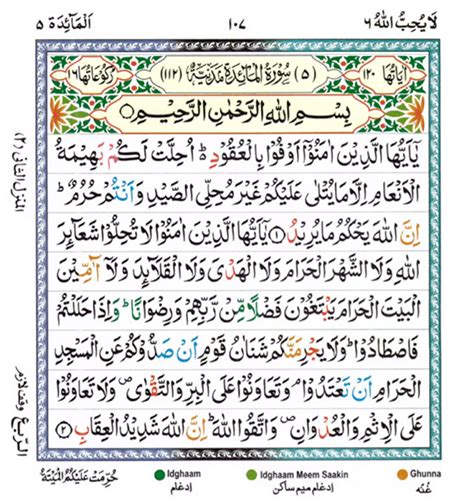 اَلْمَآئِدَة ٥ ١٠٧ لَا يُحِبُّ اللّٰهُ ٦
اٰيَاتُهَا ١٢٠ (٥) سُوْرَةُ الْمَآئِدَةِ مَدَنِيَّةٌ (١١٢) رُكُوْعَاتُهَا ١٦
بِسْمِ اللّٰهِ الرَّحْمٰنِ الرَّحِيْمِ
يٰۤاَيُّهَا الَّذِيْنَ اٰمَنُوْۤا اَوْفُوْا بِالْعُقُوْدِ ؕ اُحِلَّتْ لَكُمْ بَهِيْمَةُ
الْاَنْعَامِ اِلَّا مَا يُتْلٰى عَلَيْكُمْ غَيْرَ مُحِلِّي الصَّيْدِ وَاَنْتُمْ حُرُمٌ ؕ
اِنَّ اللّٰهَ يَحْكُمُ مَا يُرِيْدُ ١ يٰۤاَيُّهَا الَّذِيْنَ اٰمَنُوْا لَا تُحِلُّوْا شَعَآئِرَ
اللّٰهِ وَلَا الشَّهْرَ الْحَرَامَ وَلَا الْهَدْيَ وَلَا الْقَلَآئِدَ وَلَاۤ آٰمِّيْنَ
الْبَيْتَ الْحَرَامَ يَبْتَغُوْنَ فَضْلًا مِّنْ رَّبِّهِمْ وَرِضْوَانًا ؕ وَاِذَا حَلَلْتُمْ
فَاصْطَادُوْا ؕ وَلَا يَجْرِمَنَّكُمْ شَنَاٰنُ قَوْمٍ اَنْ صَدُّوْكُمْ عَنِ الْمَسْجِدِ
الْحَرَامِ اَنْ تَعْتَدُوْا ۘ وَتَعَاوَنُوْا عَلَى الْبِرِّ وَالتَّقْوٰى ۪ وَلَا تَعَاوَنُوْا
عَلَى الْاِثْمِ وَالْعُدْوَانِ ۪ وَاتَّقُوا اللّٰهَ ؕ اِنَّ اللّٰهَ شَدِيْدُ الْعِقَابِ ٢
المنزل الثانی (٢)
وقف لازم
الربع
حُرِّمَتْ عَلَيْكُمُ الْمَيْتَةُ
Idghaam
ادغام
Idghaam Meem Saakin
ادغام میم ساکن
Ghunna
غُنّه